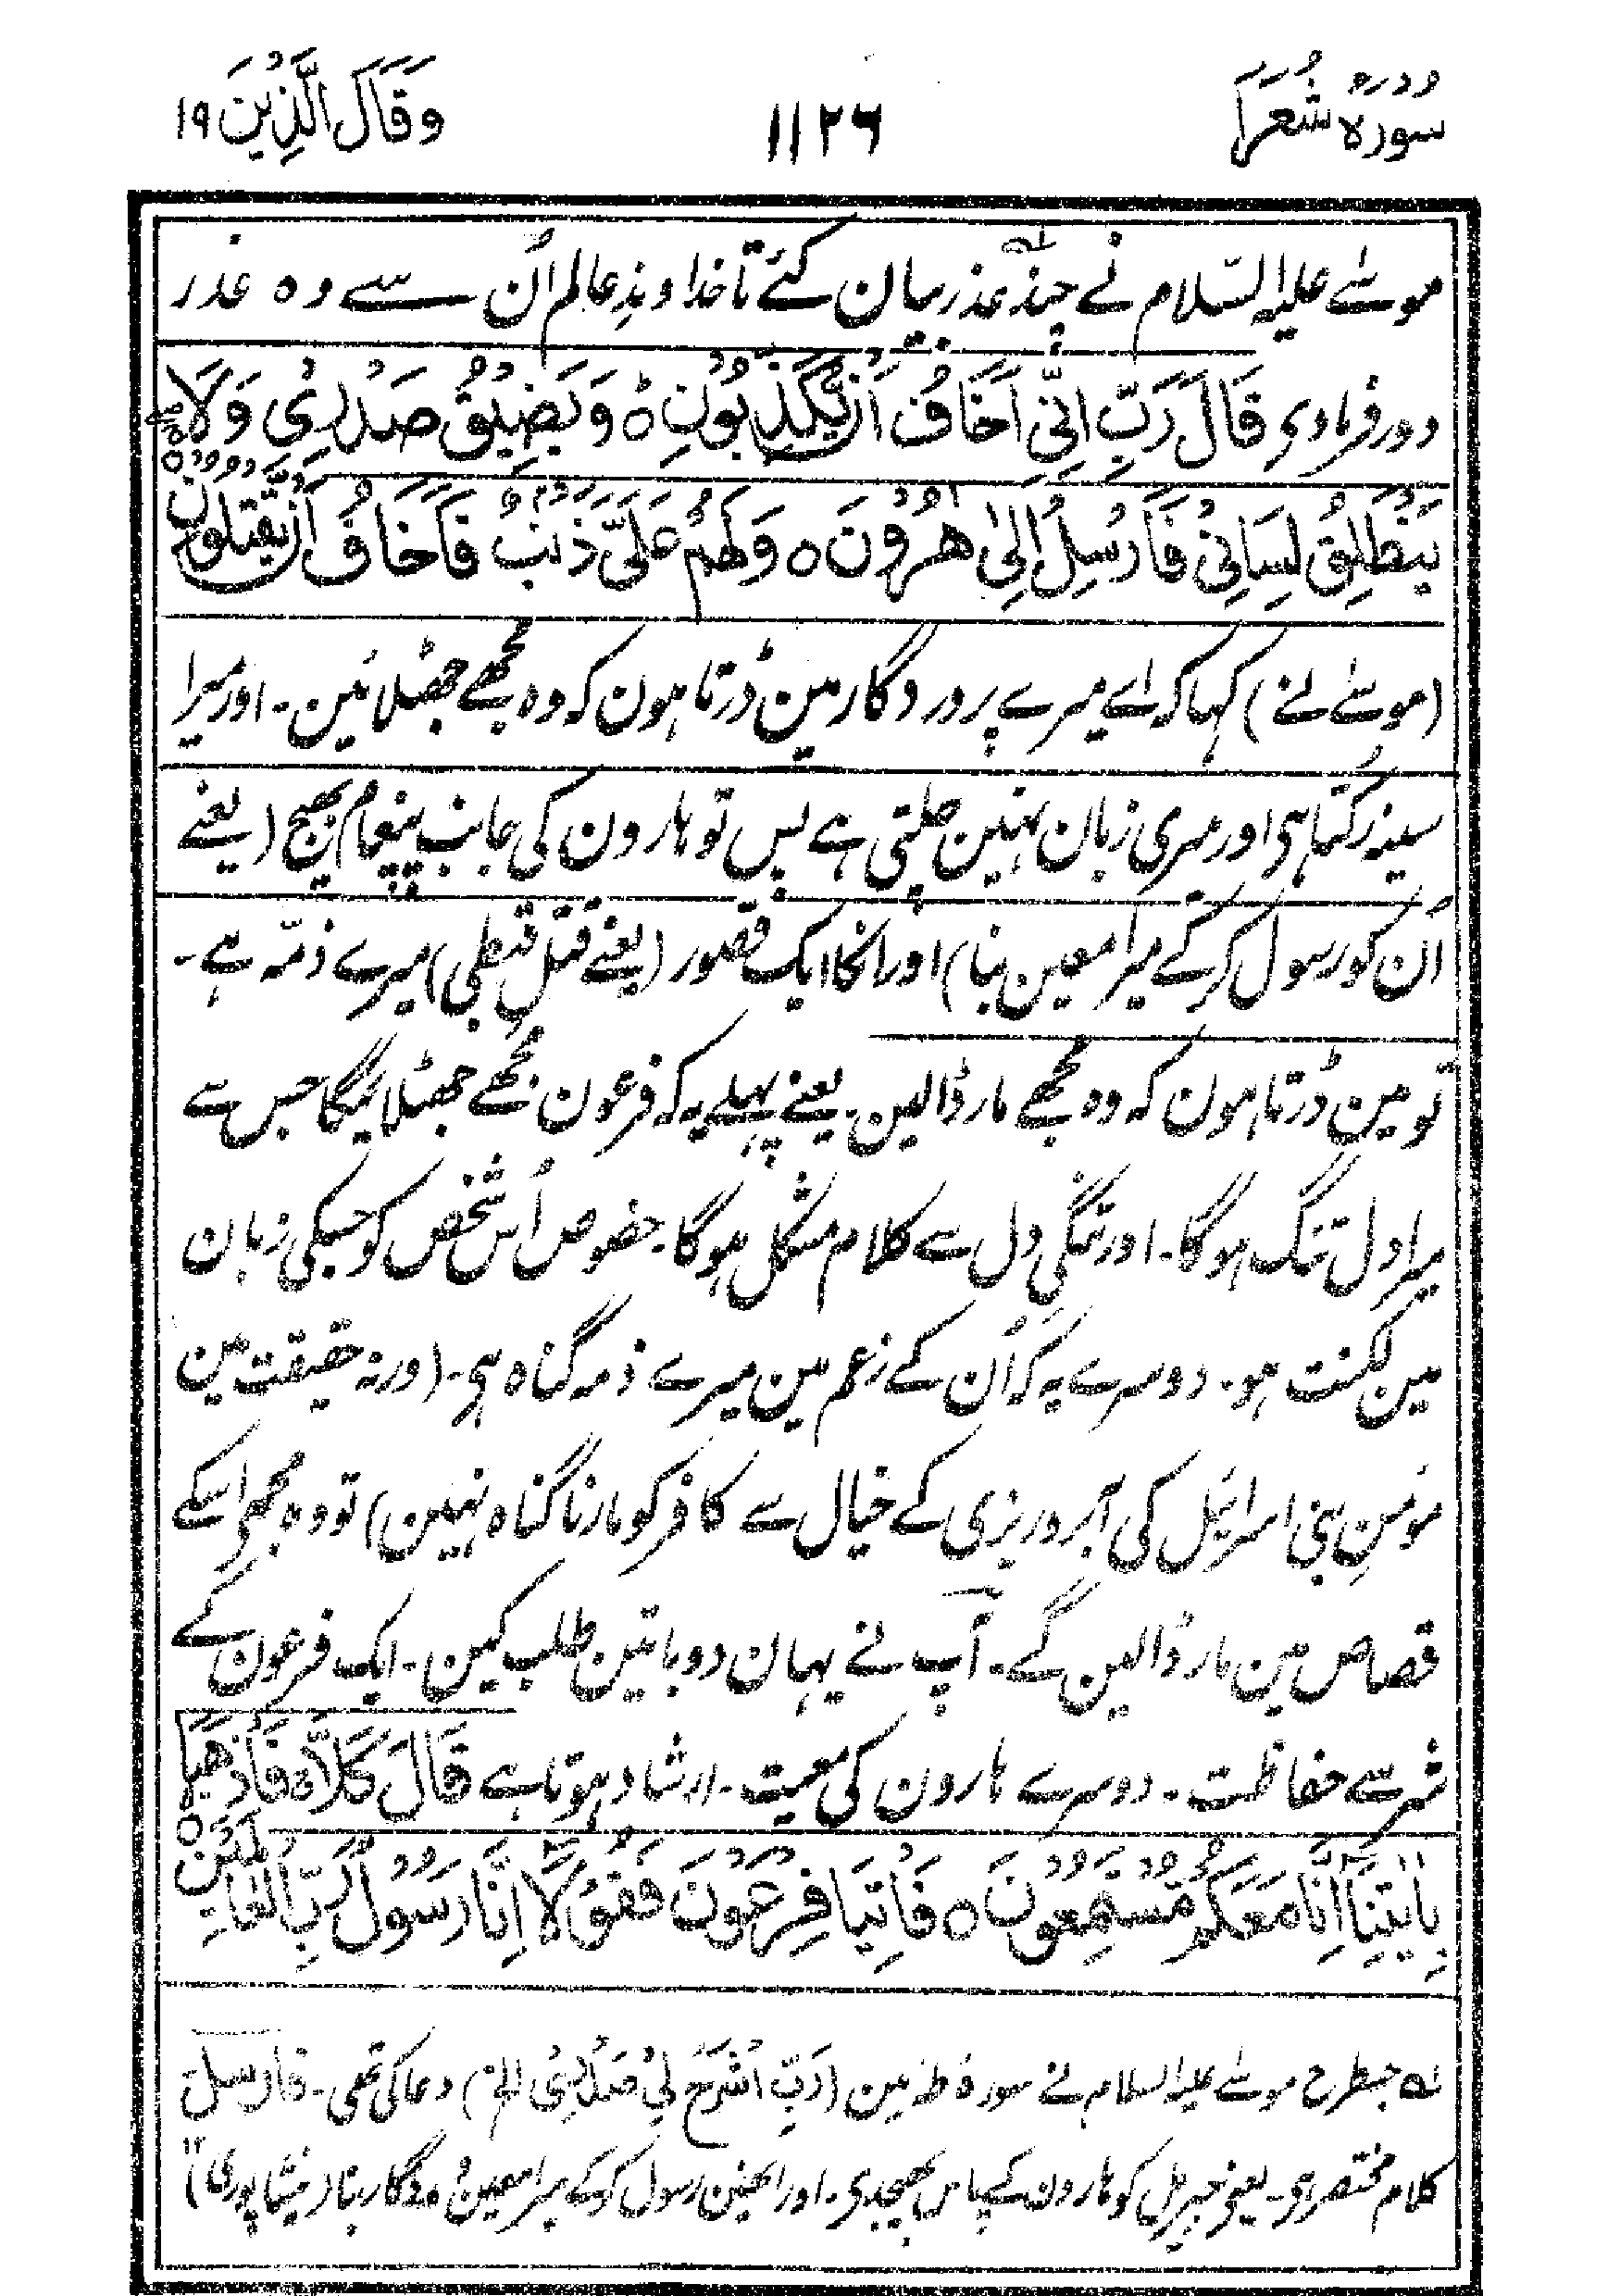 سورهٔ شُعَرَا ۱۱۲۶ وَقَالَ الَّذِيْنَ ۱۹
موسٰے علیہ السّلام نے چند عذر بیان کئے تا خداوندِ عالم اُن سے وہ عذر
دور فرمادی قَالَ رَبِّ اِنِّیْۤ اَخَافُ اَنْ یُّكَذِّبُوْنِ ۝ وَیَضِیْقُ صَدْرِیْ وَلَا
یَنْطَلِقُ لِسَانِیْ فَاَرْسِلْ اِلٰی هٰرُوْنَ ۝ وَلَهُمْ عَلَیَّ ذَنْۢبٌ فَاَخَافُ اَنْ یَّقْتُلُوْنِ ۝
(موسٰے نے) کہا کہ اے میرے پروردگار مین ڈرتا ہون کہ وہ مجھے جھٹلائین۔ اور میرا
سینہ رُکتا ہی اور میری زبان نہین چلتی ہے پس تو ہارون کی جانب پیغام بھیج (یعنے
اُن کو رسول کر کے میرا معین بنا) اور انکا ایک قصور (یعنے قتل قبطی) میرے ذمّہ ہے۔
تو مین ڈرتا ہون کہ وہ مجھے مار ڈالین۔ یعنے پہلے یہ کہ فرعون مجھے جھٹلائیگا جس سے
میرا دل تنگ ہوگا۔ اور تنگی دل سے کلام مشکل ہوگا۔ خصوص اُس شخص کو جسکی زبان
مین لکنت ہو۔ دوسرے یہ کہ اُن کے زعم مین میرے ذمہ گناہ ہی۔ (ورنہ حقیقت مین
مؤمنِ بنی اسرائیل کی آبروریزی کے خیال سے کافر کو مارنا گناہ نہین) تو وہ مجھی اسکے
قصاص مین مار ڈالین گے۔ آپ نے یہان دو باتین طلب کین۔ ایک فرعون کے
شر سے حفاظت۔ دوسرے ہارون کی معیت۔ ارشاد ہوتا ہے قَالَ كَلَّا ۚ فَاذْهَبَا
بِاٰیٰتِنَاۤ اِنَّا مَعَكُمْ مُّسْتَمِعُوْنَ ۝ فَاْتِیَا فِرْعَوْنَ فَقُوْلَاۤ اِنَّا رَسُوْلُ رَبِّ الْعٰلَمِیْنَ ۝
لہ جسطرح موسٰے علیہ السلام نے سورہ طٰہٰ مین (رَبِّ اشْرَحْ لِیْ صَدْرِیْ الخ) دعا کی تھی۔ فارسل
کلام مختصر ہی۔ یعنی جبریل کو ہارون کے پاس بھیجدی۔ اور انھین رسول کر کے میرا معین و مددگار بنا (نیشاپوری) ۱۲